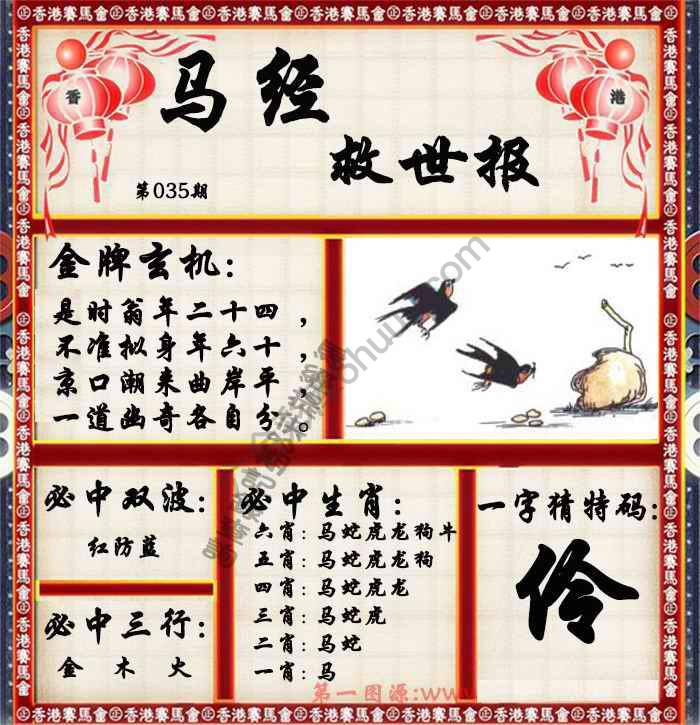 香港賽馬會㊣香港賽馬會㊣香港賽馬會㊣香港賽馬會㊣香港賽馬會㊣香港賽馬會
香
港
马经
救世报
第035期
金牌玄机:
是时翁年二十四,
不准拟身年六十,
京口潮来曲岸平,
一道幽奇各自分。
必中双波:
红防蓝
必中三行:
金 木 火
必中生肖:
六肖:马蛇虎龙狗牛
五肖:马蛇虎龙狗
四肖:马蛇虎龙
三肖:马蛇虎
二肖:马蛇
一肖:马
一字猜特码:
伶
第一图源:www